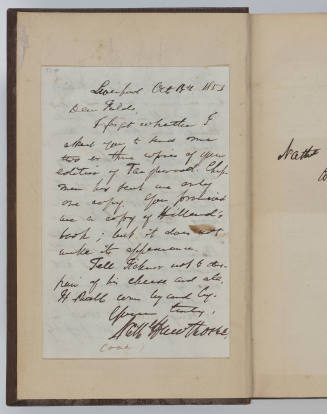 Liverpool Oct 13th 1853
Dear Fields,
I forget whether I
asked you to send me
two or three copies of your
edition of Tanglewood. Chap-
man has sent me only
one copy. You promised
me a copy of Hillard's
book; but it does not
make its appearance.
Tell Ticknor not to des-
pair of his cheese and ale.
It shall come by and by.
Yours truly,
Nath Hawthorne.
Nath